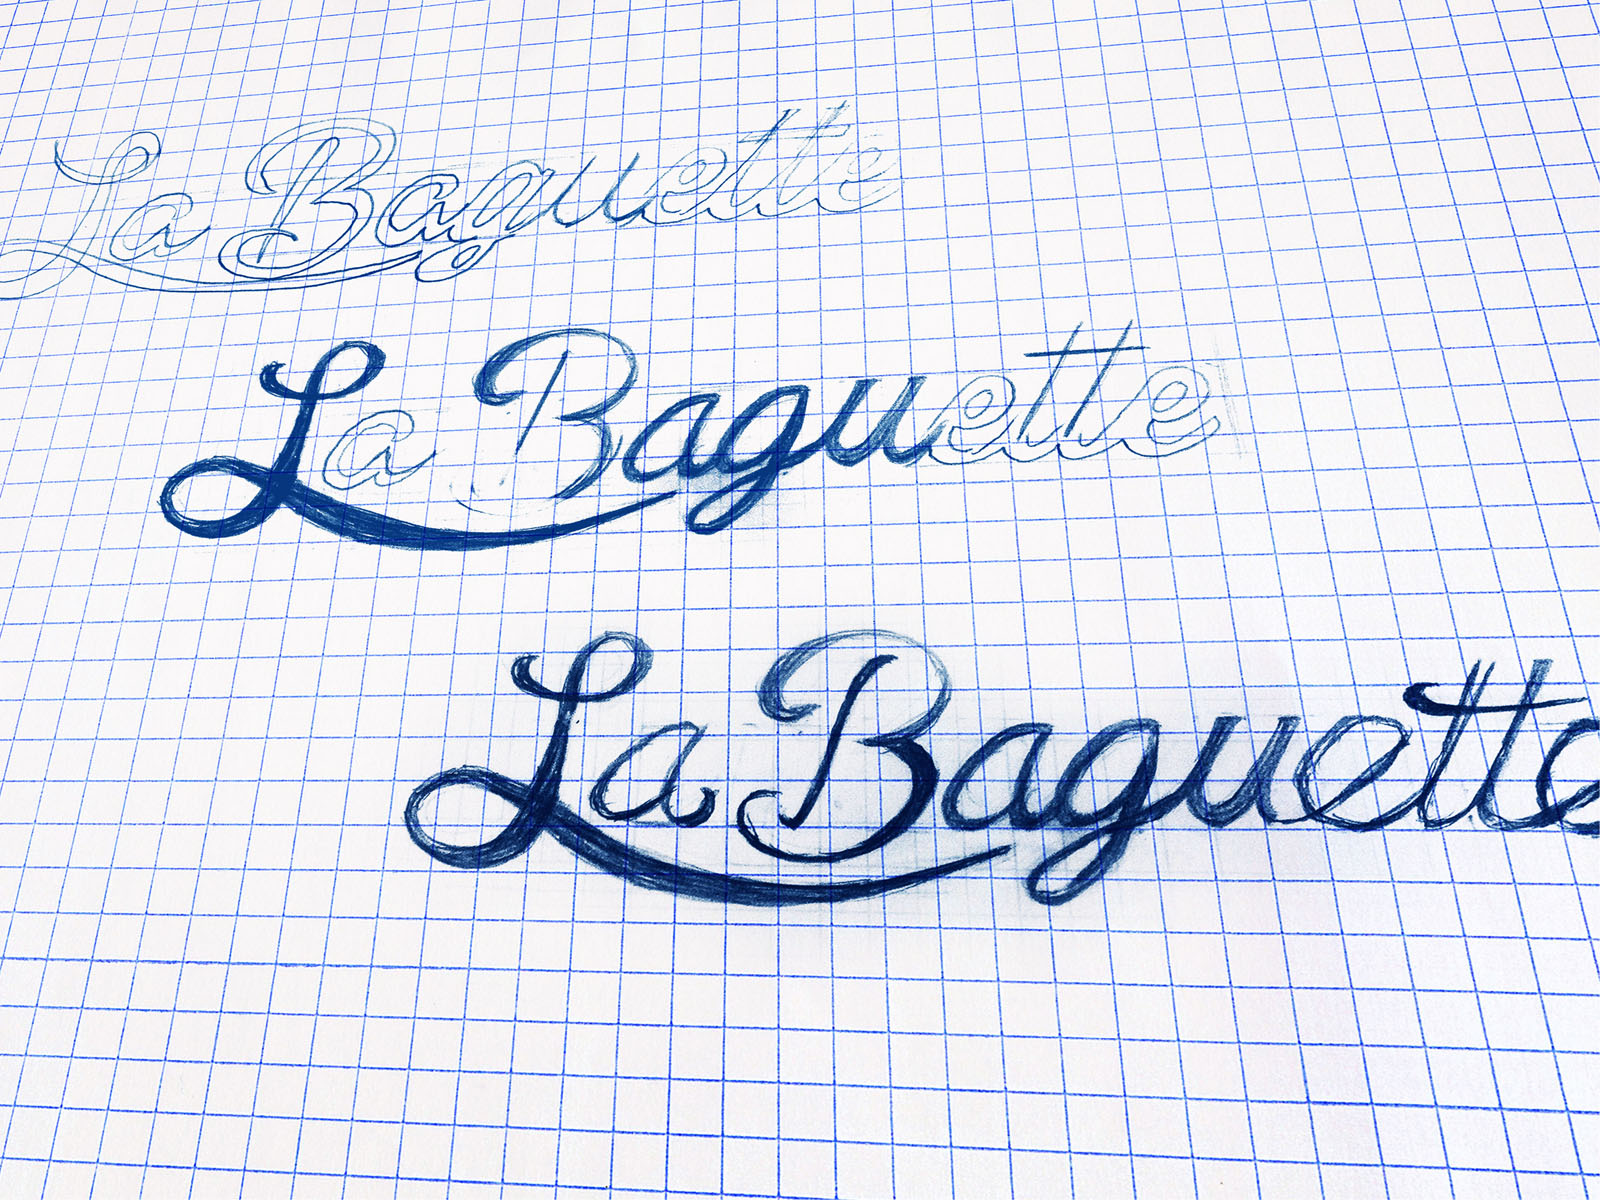 La Baguette
La Baguette
La Baguette